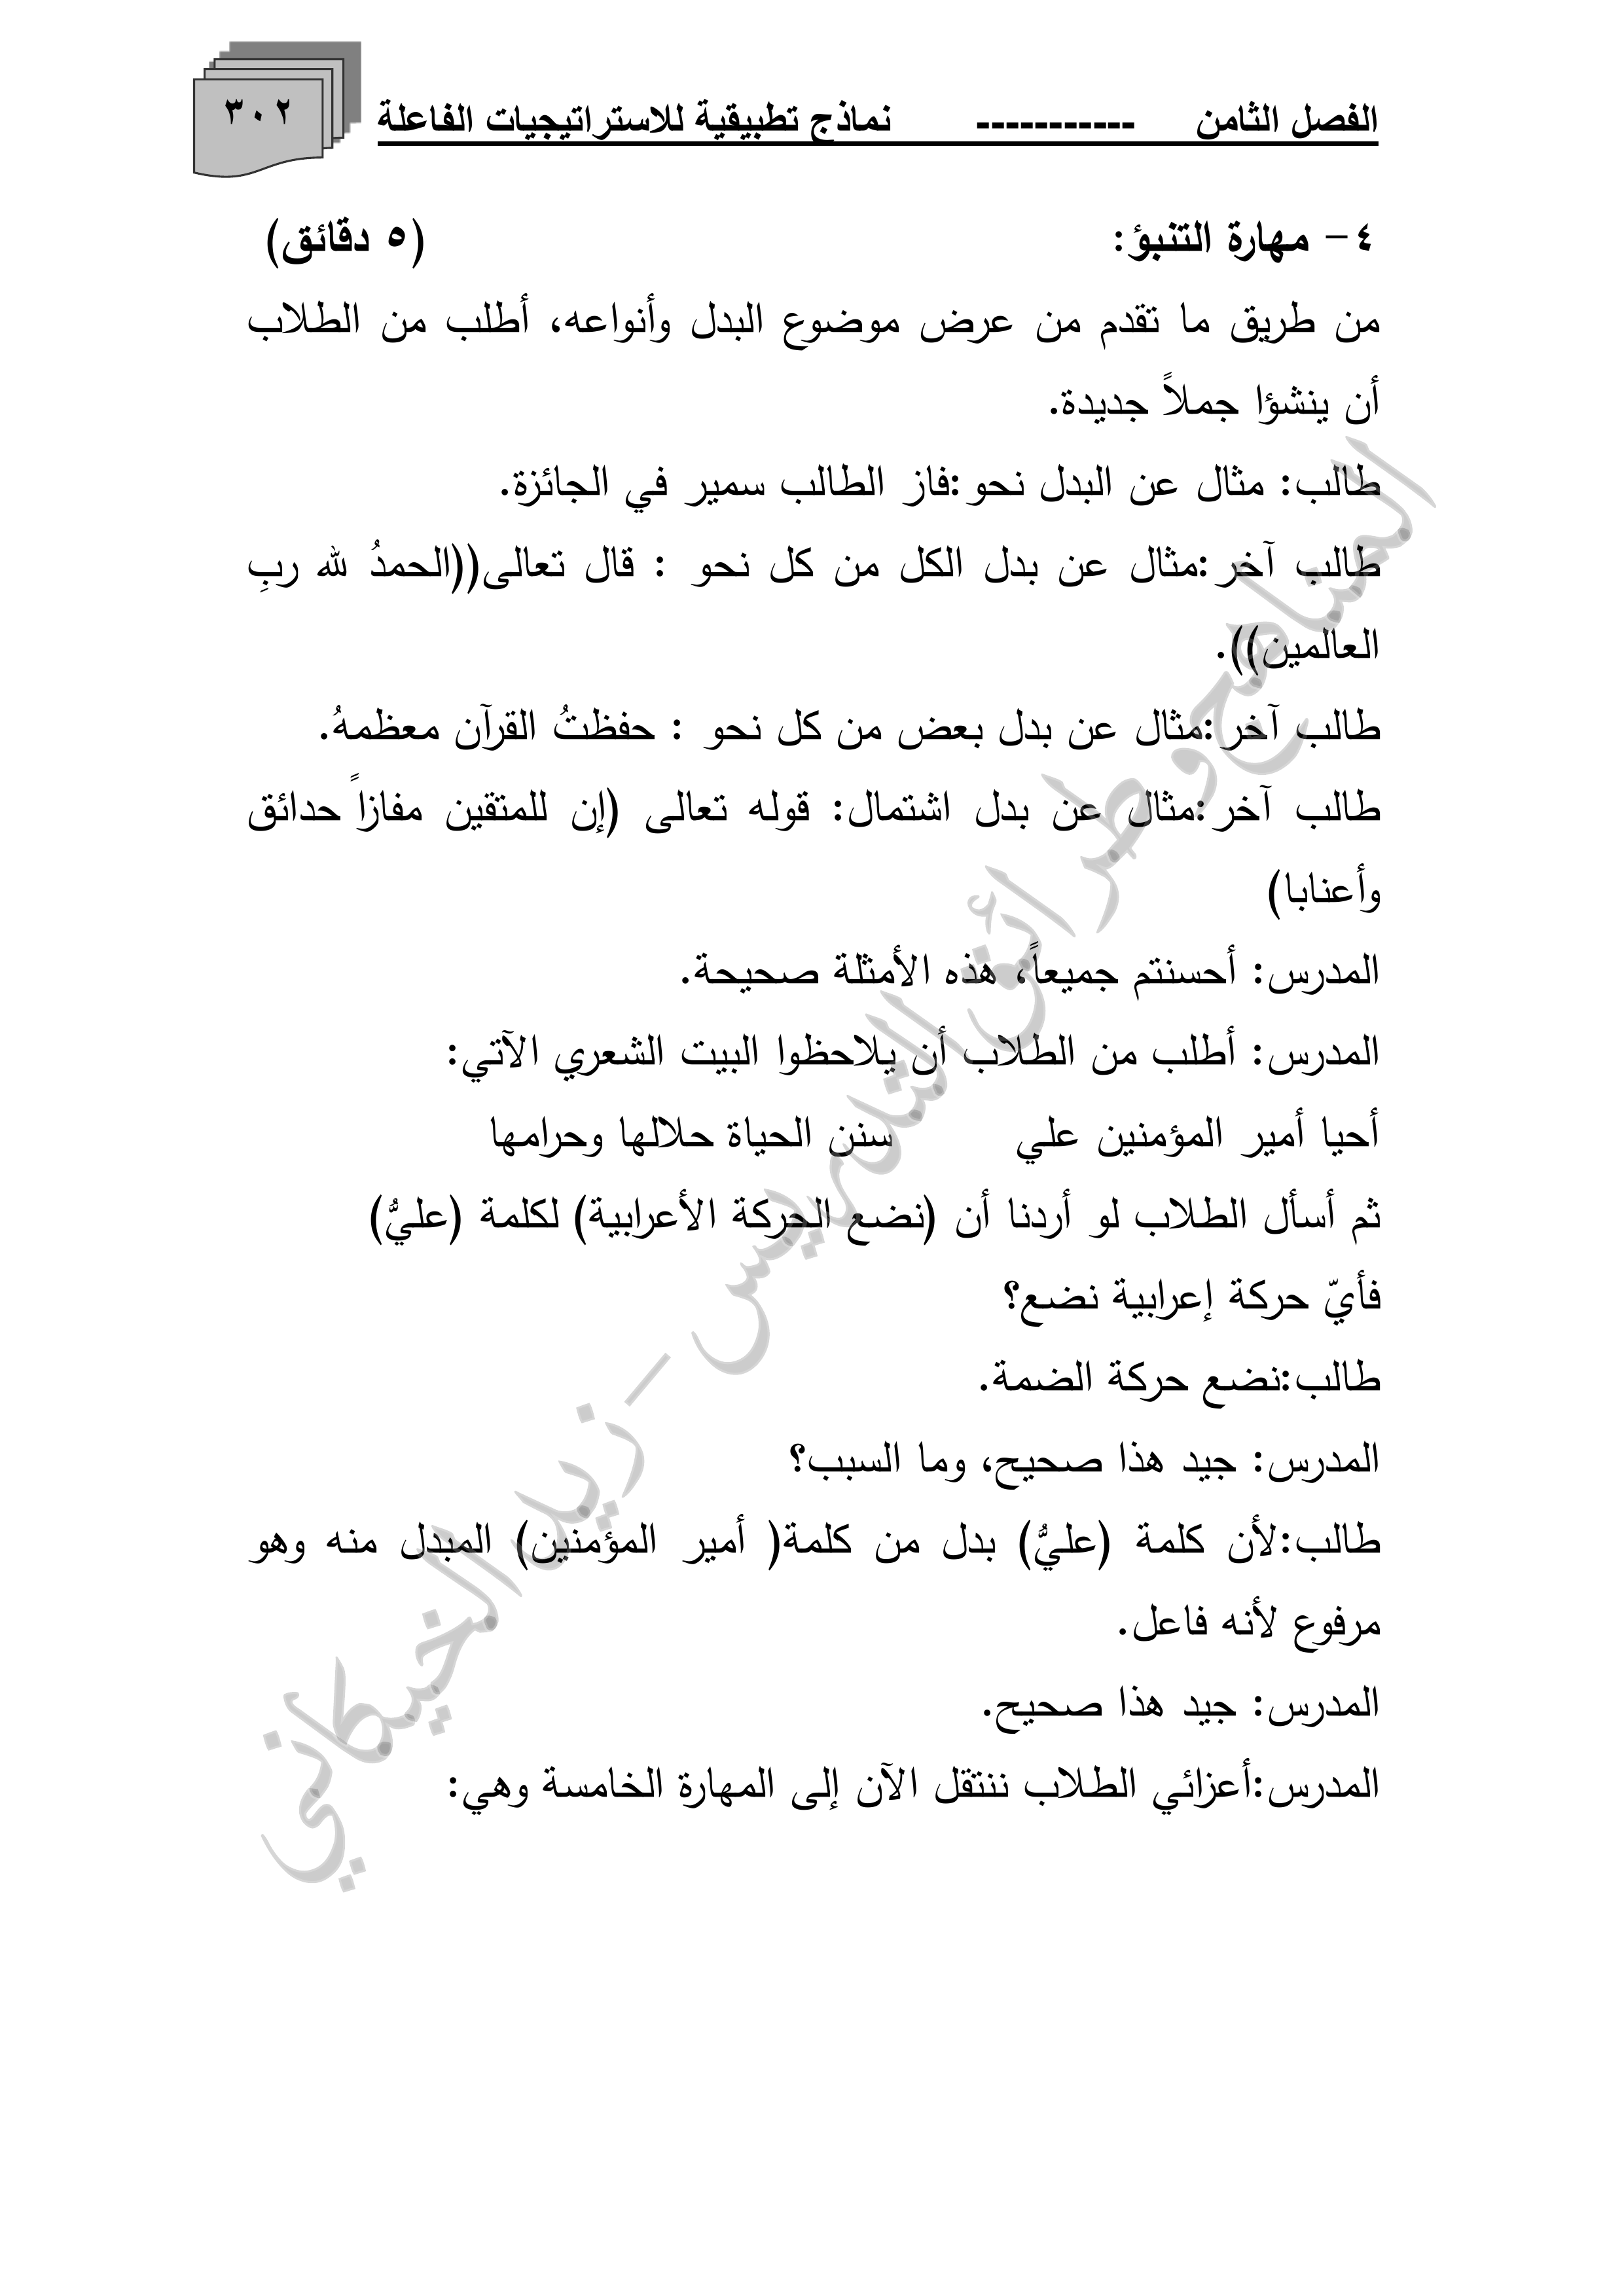 الفصل الثامن ----------- نماذج تطبيقية للاستراتيجيات الفاعلة
٣٠٢
٤- مهارة التنبؤ: (٥ دقائق)
من طريق ما تقدم من عرض موضوع البدل وأنواعه، أطلب من الطلاب
أن ينشؤا جملاً جديدة.
طالب: مثال عن البدل نحو:فاز الطالب سمير في الجائزة.
طالب آخر:مثال عن بدل الكل من كل نحو : قال تعالى((الحمدُ لله ربِ
العالمين)).
طالب آخر:مثال عن بدل بعض من كل نحو : حفظتُ القرآن معظمهُ.
طالب آخر:مثال عن بدل اشتمال: قوله تعالى (إن للمتقين مفازاً حدائق
وأعنابا)
المدرس: أحسنتم جميعاً، هذه الأمثلة صحيحة.
المدرس: أطلب من الطلاب أن يلاحظوا البيت الشعري الآتي:
أحيا أمير المؤمنين علي سنن الحياة حلالها وحرامها
ثم أسأل الطلاب لو أردنا أن (نضع الحركة الأعرابية) لكلمة (عليُّ)
فأيّ حركة إعرابية نضع؟
طالب:نضع حركة الضمة.
المدرس: جيد هذا صحيح، وما السبب؟
طالب:لأن كلمة (عليُّ) بدل من كلمة( أمير المؤمنين) المبدل منه وهو
مرفوع لأنه فاعل.
المدرس: جيد هذا صحيح.
المدرس:أعزائي الطلاب ننتقل الآن إلى المهارة الخامسة وهي:
المناهج وطرائق التدريس - زيد الخيكاني